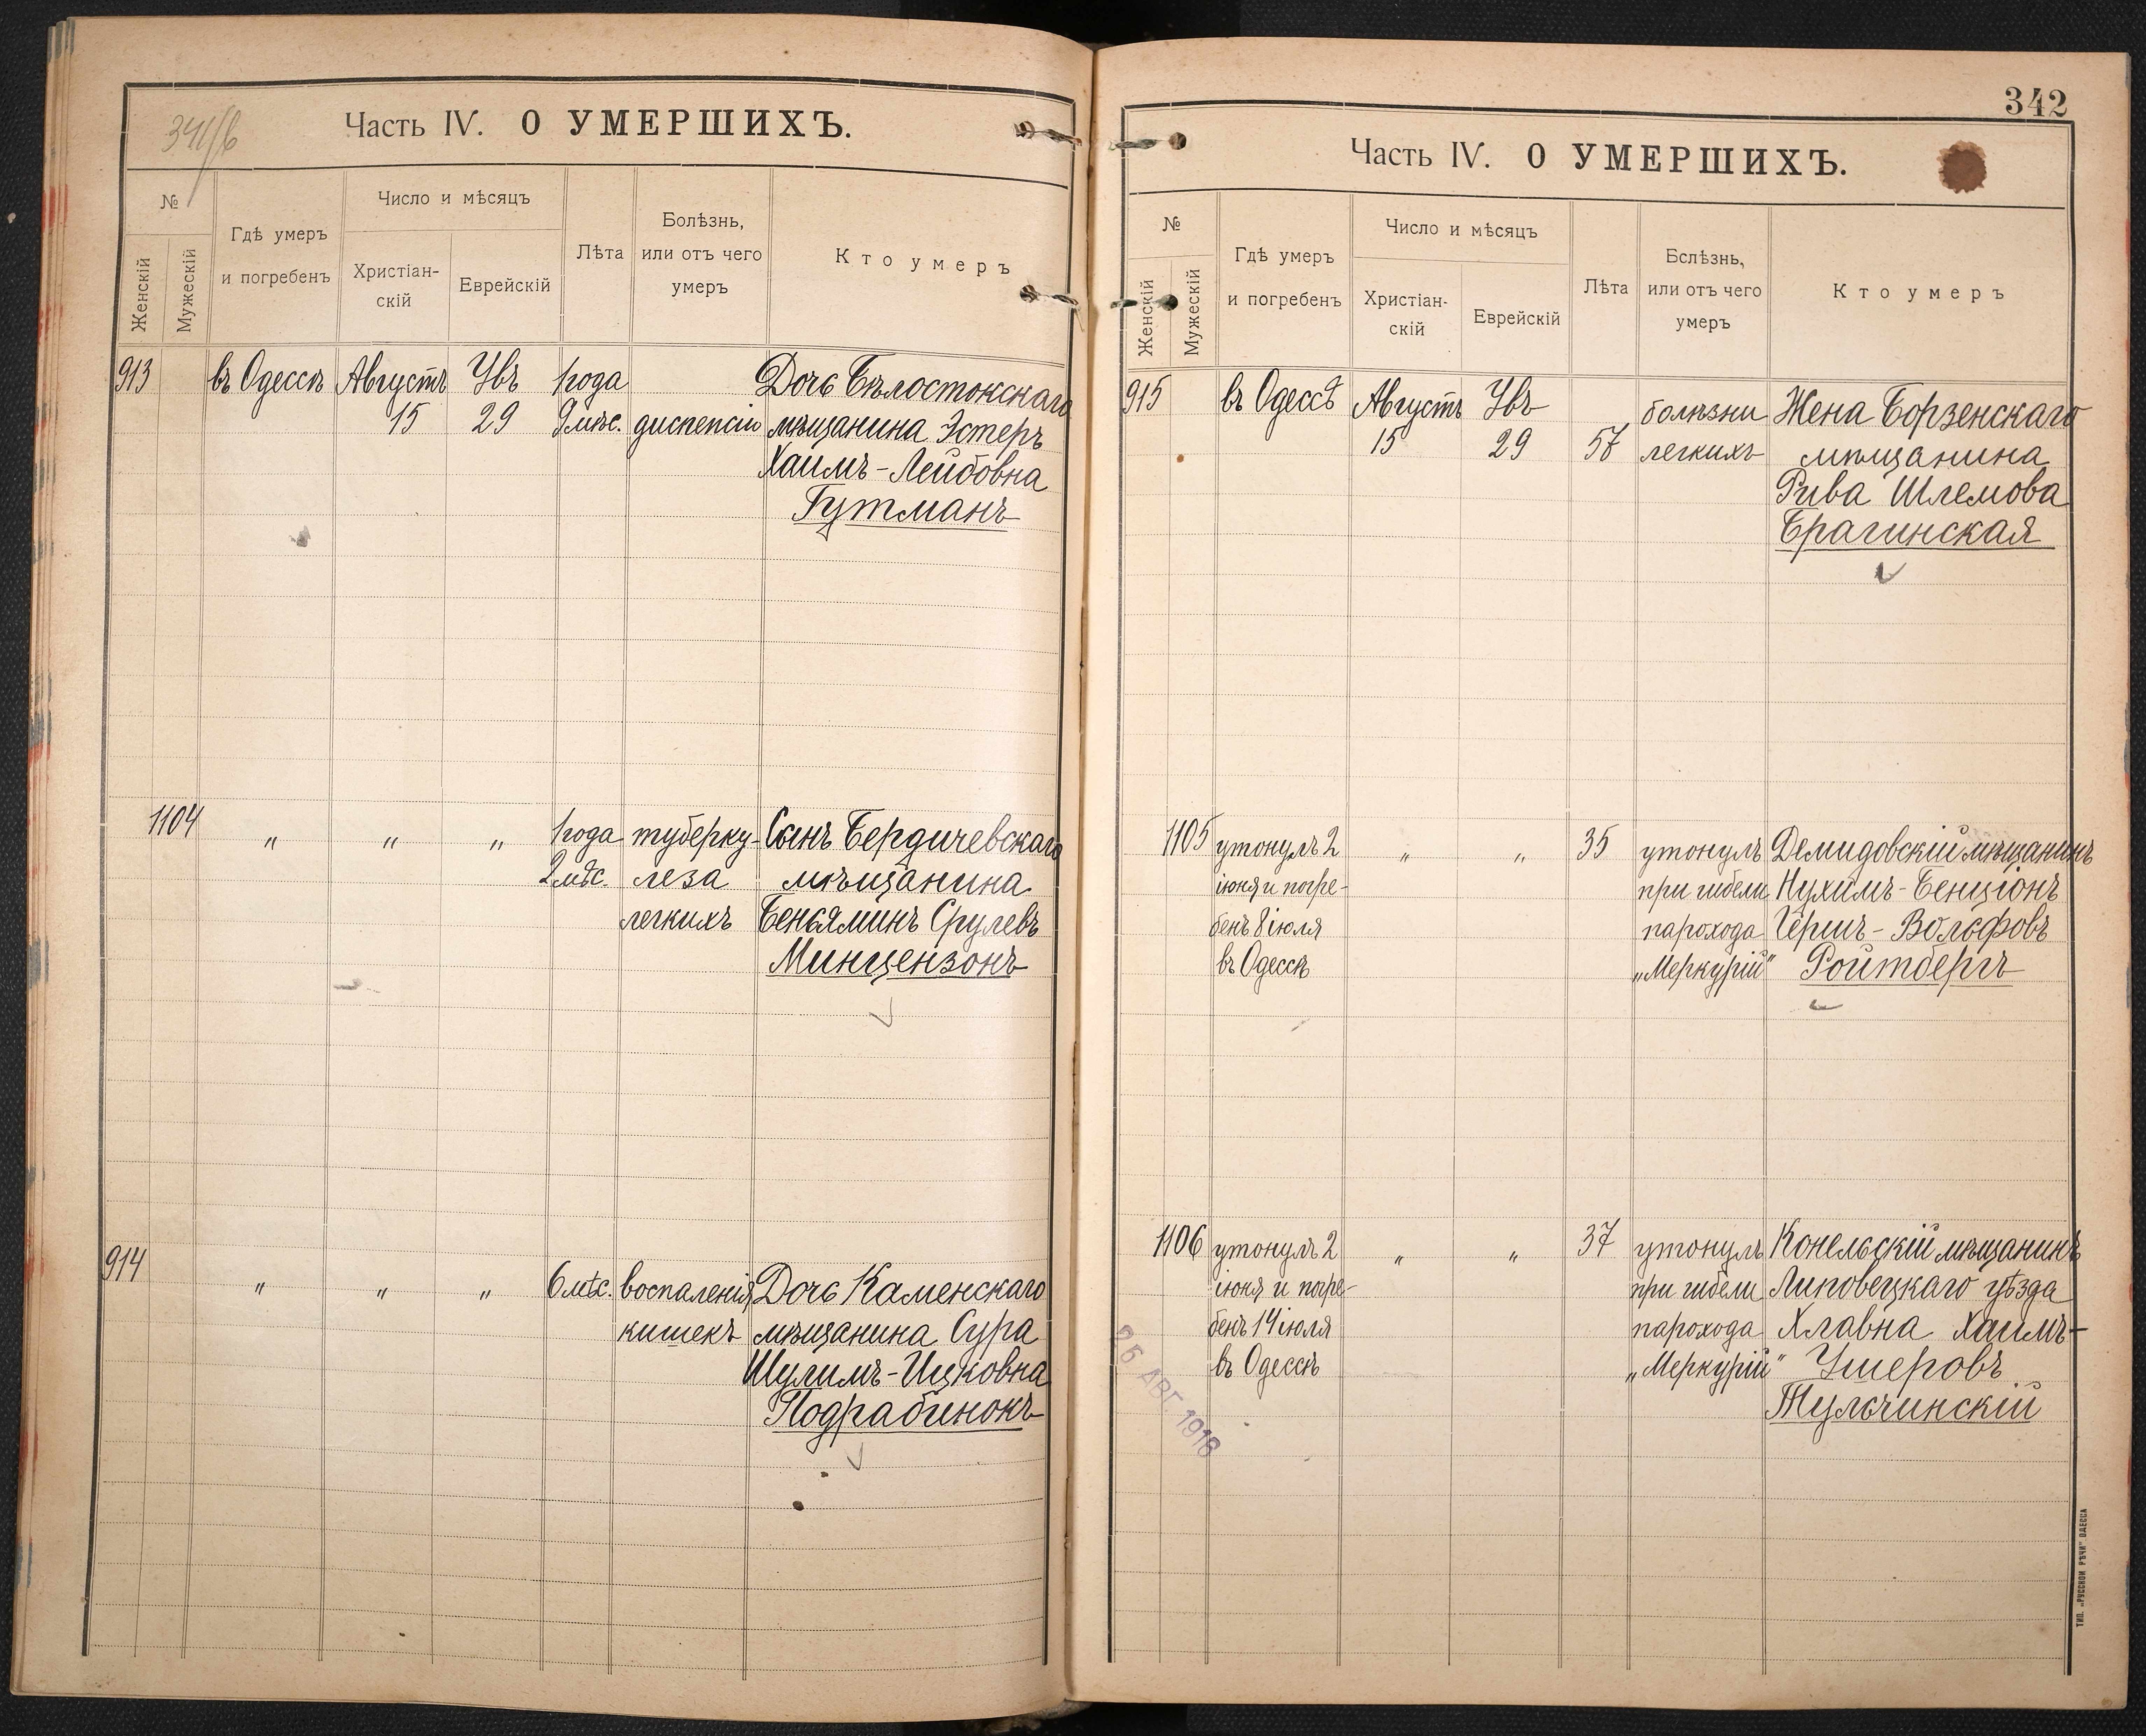 341/б
Часть IV. О УМЕРШИХЪ.
№
Женскій
Мужескій
Гдѣ умеръ
и погребенъ
Число и мѣсяцъ
Христіан-
скій
Еврейскій
Лѣта
Болѣзнь,
или отъ чего
умеръ
Кто умеръ
913 въ Одессѣ Августъ Увъ 1 года Дочь Бѣлостокскаго
15 29 9 мѣс. диспепсіи мѣщанина Эстеръ
Хаимъ-Лейбовна
Гутманъ
1104 " " " 1 года туберку- Сынъ Бердичевскаго
2 мѣс. леза мѣщанина
легкихъ Беньяминъ Срулевъ
Минцензонъ
914 " " " 6 мѣс. воспаленія Дочь Каменскаго
кишекъ мѣщанина Сура
Шулимъ-Ицковна
Подрабинокъ
342
Часть IV. О УМЕРШИХЪ.
№
Женскій
Мужескій
Гдѣ умеръ
и погребенъ
Число и мѣсяцъ
Христіан-
скій
Еврейскій
Лѣта
Бслѣзнь,
или отъ чего
умеръ
Кто умеръ
915 въ Одессѣ Августъ Увъ болѣзни Жена Борзенскаго
15 29 57 легкихъ мѣщанина
Рива Шлемова
Брагинская
1105 утонулъ 2 " " 35 утонулъ Демидовскій мѣщанинъ
іюня и погре- при гибели Нухимъ-Бенціонъ
бенъ 8 іюля парохода Гершъ-Вольфовъ
въ Одессѣ „Меркурій" Ройтбергъ
1106 утонулъ 2 " " 37 утонулъ Конельскій мѣщанинъ
іюня и погре- при гибели Липовецкаго уѣзда
бенъ 14 іюля парохода Хлавна Хаимъ-
въ Одессѣ „Меркурій" Ушеровъ
Тульчинскій
26 АВГ 1918
ТИП. „РУССКОЙ РѢЧИ" ОДЕССА